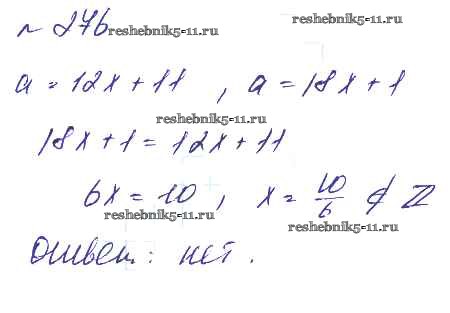 reshebnik5-11.ru
№ 276 reshebnik5-11.ru
a = 12x + 11 , a = 18x + 1
reshebnik5-11.ru
18x + 1 = 12x + 11
6x = 10 , x = 10/6 ∉ ℤ
reshebnik5-11.ru
reshebnik5-11.ru
Ответ: нет.